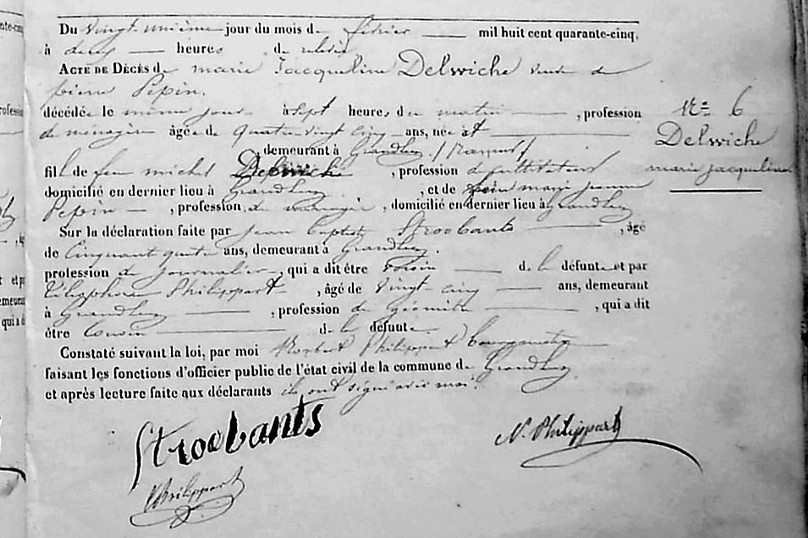 Du vingt unième jour du mois de février mil huit cent quarante-cinq,
à deux heures de relevée
ACTE DE DÉCÈS de marie Jacqueline Delwiche veuve de
pierre Pepin.
décédée le même jour à Sept heures du matin, profession
de ménagère âgée de quatre vingt cinq ans, née à
, demeurant à Grandleez / Namur /
fil de feu michel Delwiche, profession de cultivateur
domicilié en dernier lieu à Grandleez, et de marie jeanne
Pepin, profession de ménagère, domicilié en dernier lieu à Grandleez
Sur la déclaration faite par jean baptiste Stroobants, âgé
de Cinquante quatre ans, demeurant à Grandleez.
profession de journalier, qui a dit être voisin de la défunte et par
Télesphore Philippart, âgé de vingt cinq ans, demeurant
à Grandleez, profession de géomètre, qui a dit
être cousin de la défunte.
Constaté suivant la loi, par moi Norbert Philippart bourgmestre
faisant les fonctions d'officier public de l'état civil de la commune de Grandleez
et après lecture faite aux déclarants ils ont signé avec moi.
Stroobants
Philippart
N. Philippart
N° 6
Delwiche
marie jacqueline